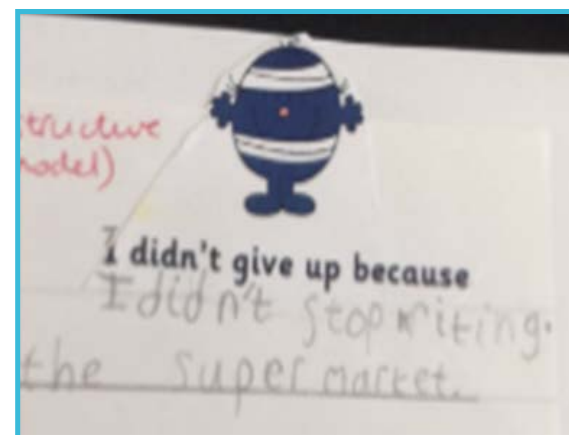 tructure
model)
I didn't give up because
I didn't stop writing.
the supermarket.